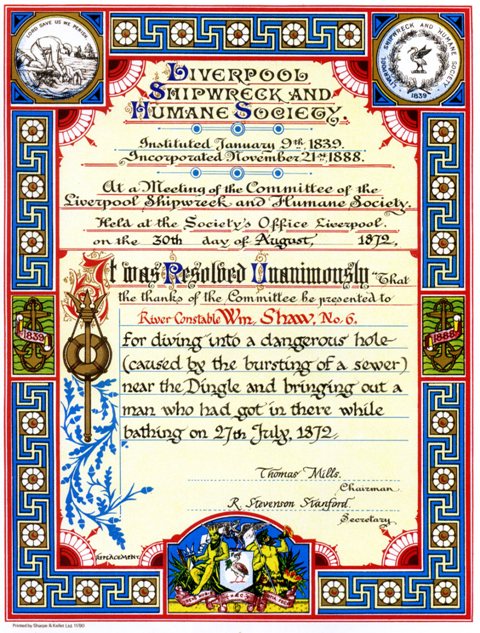 LORD SAVE US WE PERISH
LIVERPOOL SHIPWRECK AND HUMANE SOCIETY
1839
LIVERPOOL
SHIPWRECK AND
HUMANE SOCIETY.
Instituted January 9th, 1839.
Incorporated November 21st, 1888.
At a Meeting of the Committee of the
Liverpool Shipwreck and Humane Society.
Held at the Society's Office Liverpool.
on the 30th day of August, 1872,
It was Resolved Unanimously "That
the thanks of the Committee be presented to
River Constable Wm. Shaw, No. 6.
for diving into a dangerous hole
(caused by the bursting of a sewer)
near the Dingle and bringing out a
man who had got in there while
bathing on 27th July, 1872.
1839
1888
Thomas Mills.
Chairman
R. Stevenson Stanford.
Secretary
REPLACEMENT.
Printed by Sharpe & Kellet Ltd. 11/90